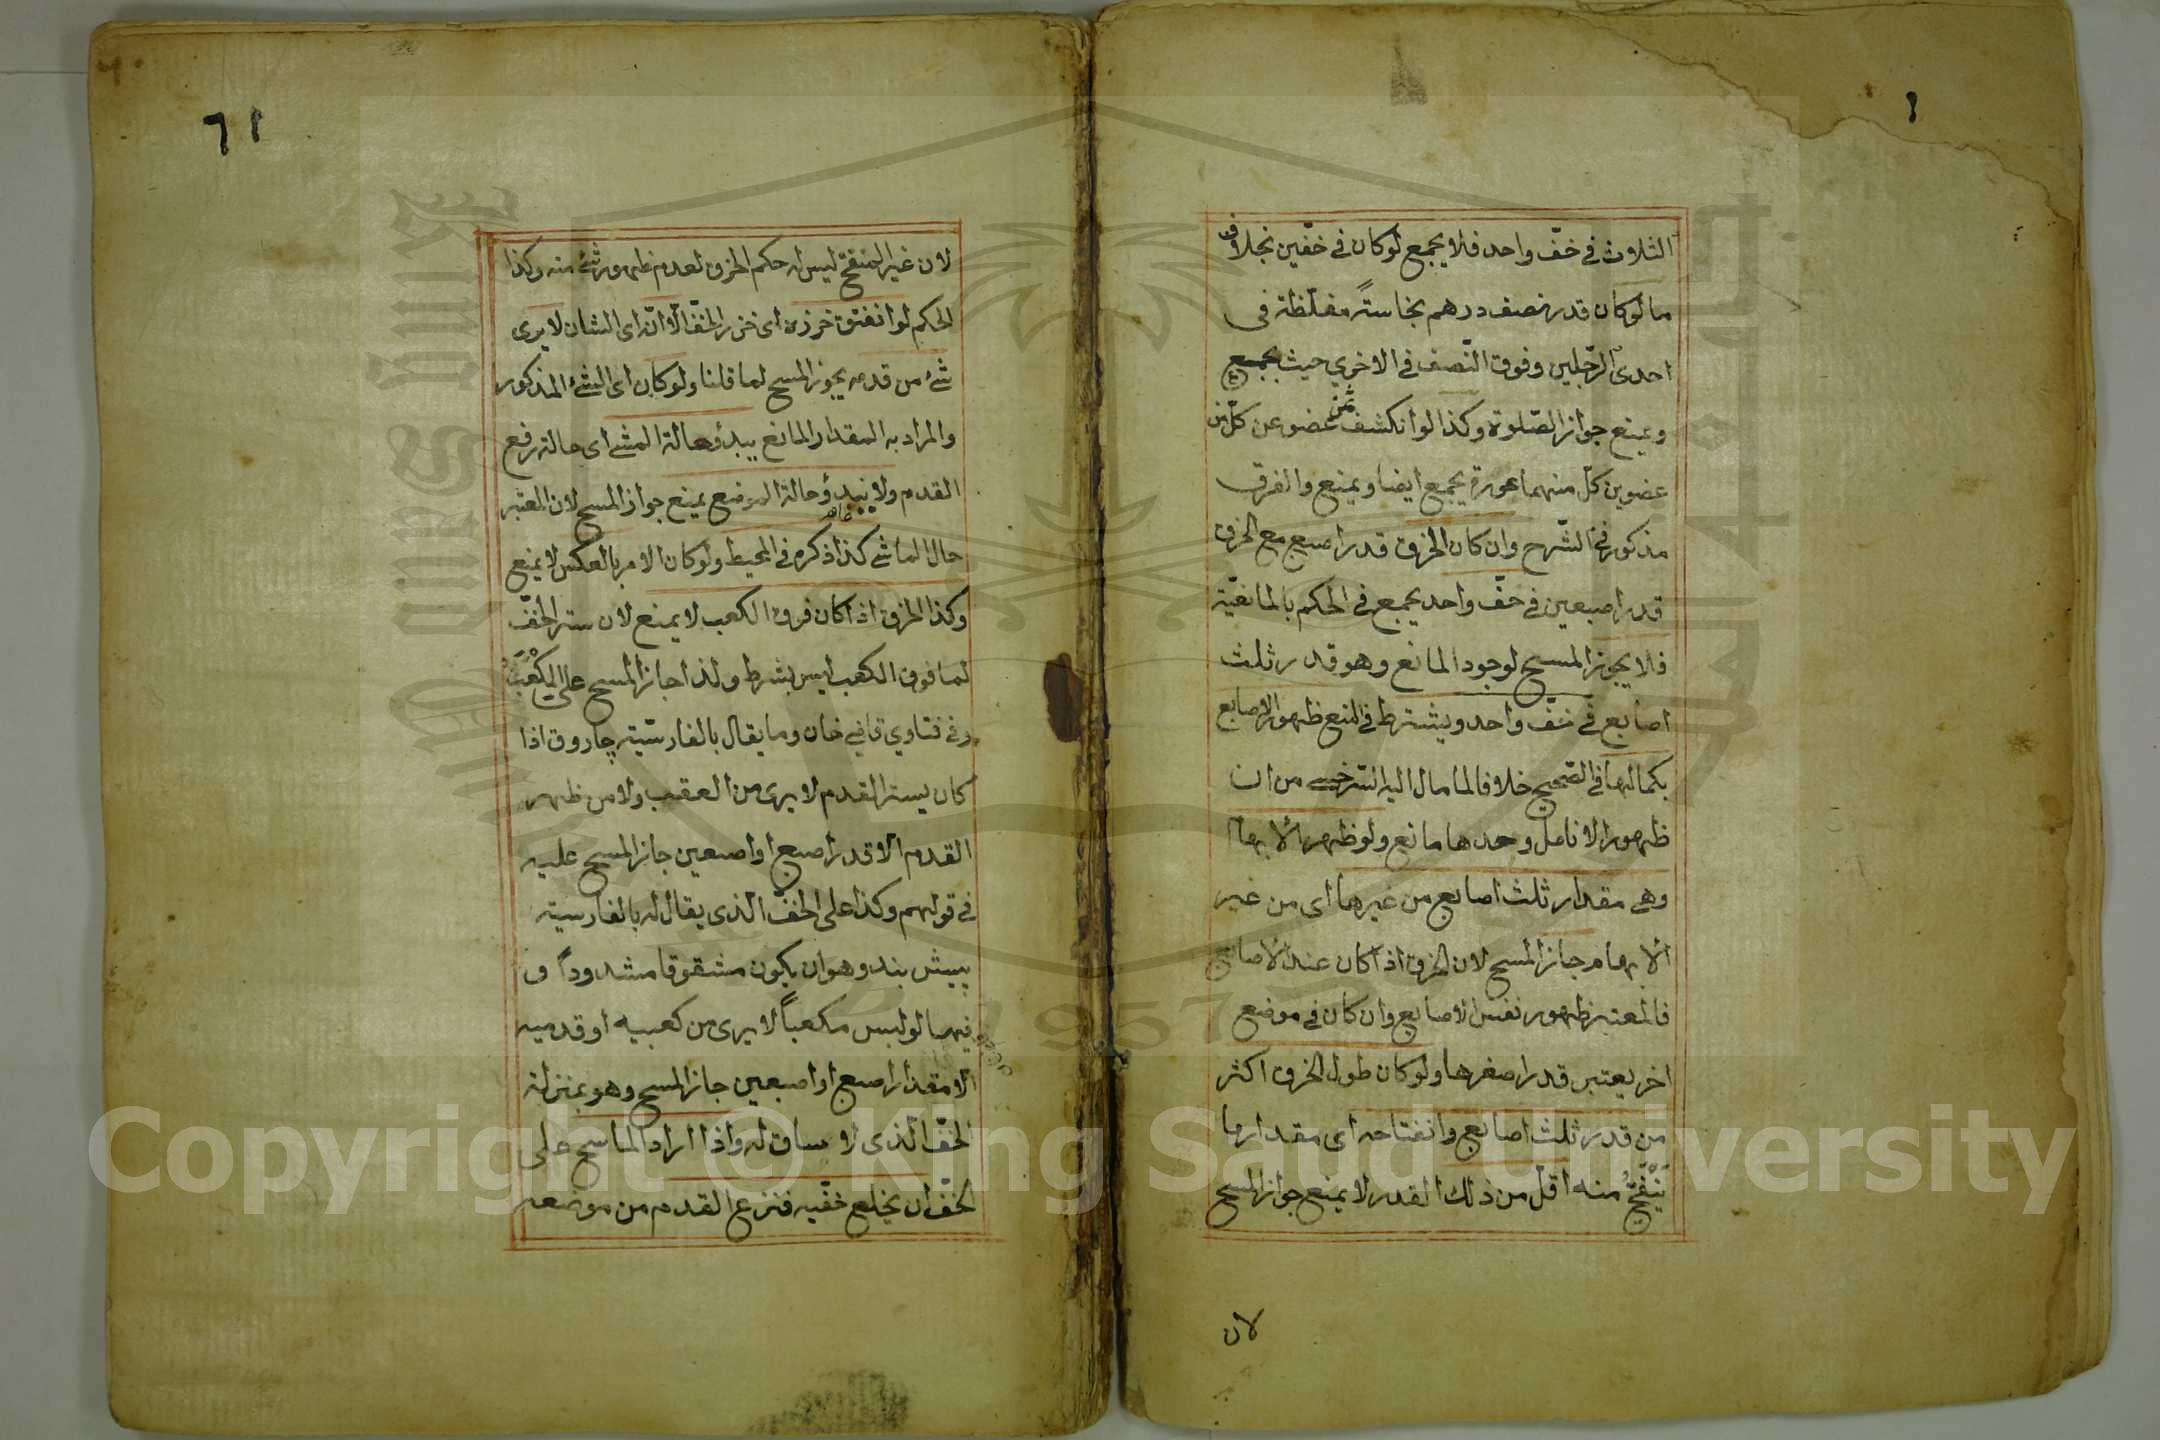 ١
الثلاث في خفّ واحد فلا يجمع لو كان في خفّين بخلاف
ما لو كان قدر نصف درهم بخاسةً مغلّظة في
احدى الرّجلين وفوق النّصف في الاخري حيث يجمع
ويمنع جواز الصّلوة وكذا لو انكشف ثمن عضو عن كلّ من
عضوين كلّ منهما عورة يجمع ايضا ويمنع والفرق
مذكور في الشّرح وان كان الخرق قدر اصبع مع الخرق
قدر اصبعين في خفّ واحد يجمع في الحكم بالمانعيّة
فلا يجوز المسح لوجود المانع وهو قدر ثلث
اصابع في خفّ واحد ويشترط في المنع ظهور الاصابع
بكمالها في الصّحيح خلافا لما مال اليه السّرخسي من ان
ظهور الانامل وحدها مانع ولو ظهر الابهام
وهي مقدار ثلث اصابع من غيرها اى من غير
الابهام جاز المسح لان الخرق اذا كان عند الاصابع
فالمعتبر ظهور نفس الاصابع وان كان في موضع
اخر يعتبر قدر اصغرها ولو كان طول الخرق اكثر
من قدر ثلث اصابع وانفتاحه اى مقدار ما
يَنْفَتِحُ منه اقلّ من ذلك القدر لا يمنع جواز المسح
لان
٦١
لان غير المنفتح ليس له حكم الخرق لعدم ظهور شئ منه وكذا
الحكم لو انفتق خرزه اى خرز الخفّ الّا انّه اى الشان لا يرى
شئ من قدمه يجوز المسح لما قلنا ولو كان اى الشئ المذكور
والمراد به المقدار المانع يبدؤ حالة المشى اى حالة رفع
القدم ولا يبدؤ حالة الوضع يمنع جواز المسح لان المعتبر
حال الماشى كذا ذكره في المحيط ولو كان الامر بالعكس لا يمنع
وكذا الخرق اذا كان فوق الكعب لا يمنع لان ستر الخفّ
لما فوق الكعب ليس بشرط ولذا جاز المسح على المكعّب
وفي فتاوي قاضي خان وما يقال بالفارسيّة چاروق اذا
كان يستر القدم لا يرى من العقب ولا من ظهر
القدم الّا قدر اصبع او اصبعين جاز المسح عليه
في قولهم وكذا على الخفّ الّذى يقال له بالفارسيّة
پيش بند وهو ان يكون مشقوقا مشدوداً و
فيهما لو لبس مكعباً لا يرى من كعبيه او قدميه
الّا مقدار اصبع او اصبعين جاز المسح وهو بمنزلة
الخفّ الّذى لا ساق له واذا اراد الماسح على
الخفّ ان يخلع خفّيه فنزع القدم من موضعه
Copyright © King Saud University
1957